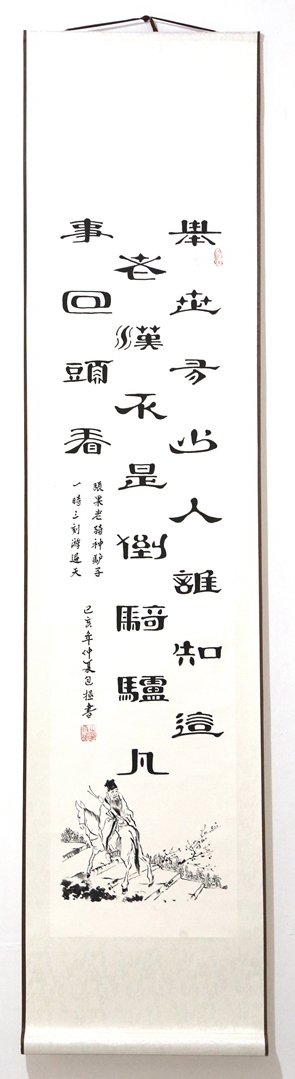 舉世多少人誰知這
老漢不是倒騎驢凡
事回頭看
張果老騎神驴子
一時三刻游遍天
己亥年仲夏包極書